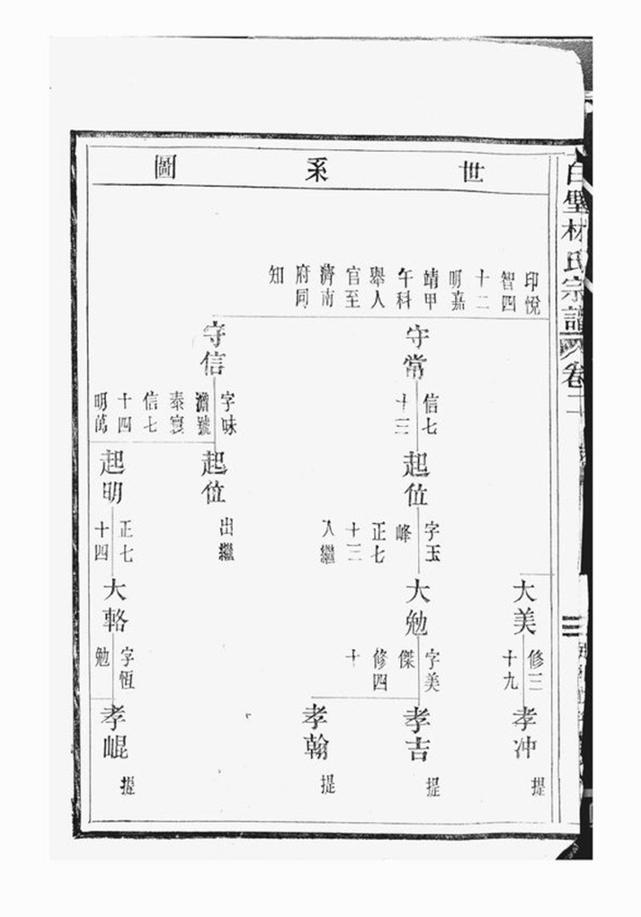 世系圖
白壁林氏宗譜 卷二
印悅
智四
十二
明嘉
靖甲
午科
舉人
官至
濟南
府同
知
守常
信七
十三
守信
字味
澹號
泰寰
信七
十四
明萬
起位
字玉
峰
正七
十三
入繼
起位
出繼
起明
正七
十四
大美
修三
十九
大勉
字美
傑
修四
十
大輅
字恆
勉
孝冲
提
孝吉
提
孝翰
提
孝崐
提
三